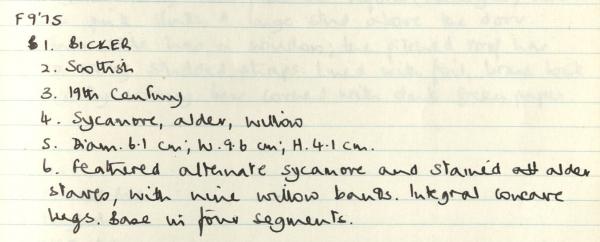 F9'75
1. BICKER
2. Scottish
3. 19th Century
4. Sycamore, alder, willow
5. Diam. 6.1 cm; W. 9.6 cm; H. 4.1 cm.
6. Feathered alternate sycamore and stained alder
staves, with nine willow bands. Integral concave
lugs. Base in four segments.